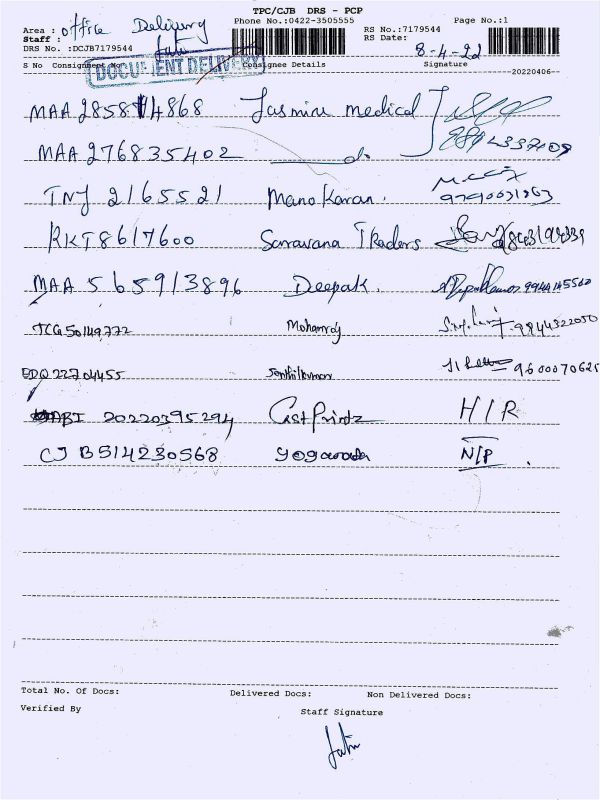 TPC/CJB DRS - PCP
Area : office Delivery
Phone No.:0422-3505555
Page No.:1
Staff :
RS No.:7179544
DRS No. :DCJB7179544
RS Date: 8-4-22
S No Consignment No. Consignee Details Signature
DOCUMENT DELIVERY
20220406-
MAA 285814868 Jasmine medical
MAA 276835402 do
TNJ 2165521 Mano Karan. 9790031863
RKT 8617600 Saravana Traders
MAA 565913896 Deepak. 9944145560
TCG 50149772 Mohanraj 9844322050
EDQ 22704455 Senthilkumar 9600070625
ABI 20220395294 Cast Printz H/R
CJB514230568 N/P
Total No. Of Docs: Delivered Docs: Non Delivered Docs:
Verified By Staff Signature